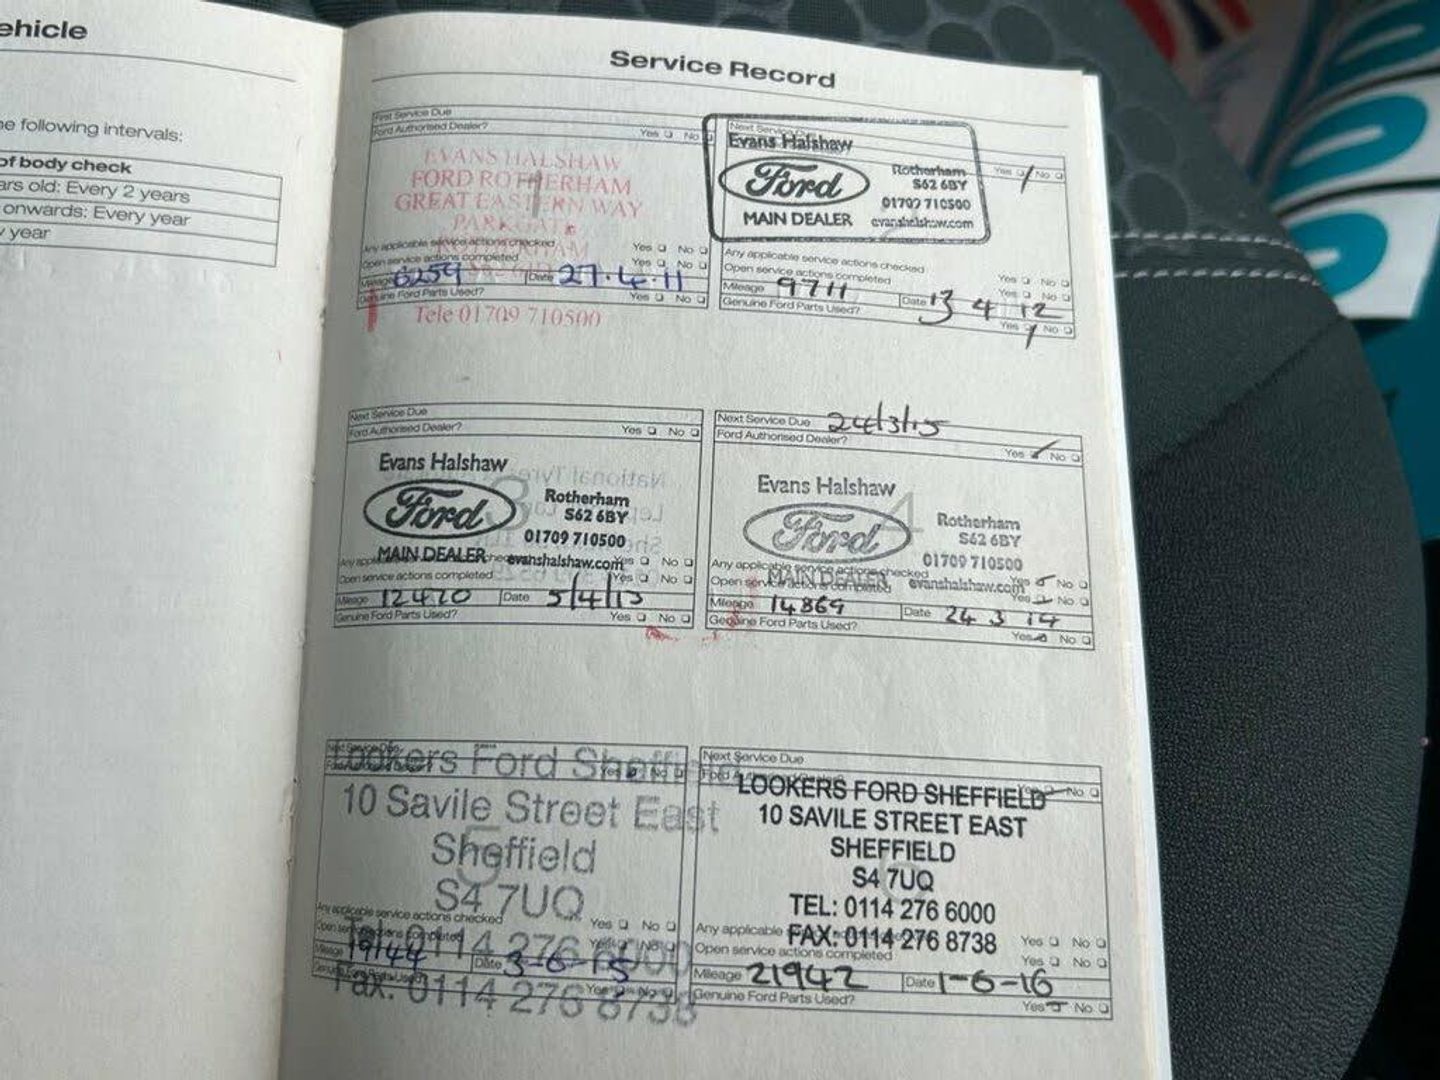 ehicle
ne following intervals:
of body check
ars old: Every 2 years
onwards: Every year
y year
Service Record
First Service Due
Ford Authorised Dealer? Yes No
EVANS HALSHAW
FORD ROTHERHAM
GREAT EASTERN WAY
PARKGATE
Any applicable service actions checked Yes No
Open service actions completed Yes No
Mileage 6259 Date 27.4.11
Genuine Ford Parts Used? Yes No
Tele 01709 710500
Evans Halshaw
Ford
MAIN DEALER
Rotherham
S62 6BY
01709 710500
evanshalshaw.com
Yes No
Any applicable service actions checked Yes No
Open service actions completed Yes No
Mileage 9711 Date 13 4 12
Genuine Ford Parts Used? Yes No
Next Service Due
Ford Authorised Dealer? Yes No
3
Evans Halshaw
Ford
MAIN DEALER
Rotherham
S62 6BY
01709 710500
evanshalshaw.com
Yes No
Open service actions completed Yes No
Mileage 12420 Date 5/4/13
Genuine Ford Parts Used? Yes No
Next Service Due 24/3/15
Ford Authorised Dealer? Yes No
4
Evans Halshaw
Ford
MAIN DEALER
Rotherham
S62 6BY
01709 710500
evanshalshaw.com
Any applicable service actions checked Yes No
Open service actions completed Yes No
Mileage 14869 Date 24 3 14
Genuine Ford Parts Used? Yes No
Next Service Due
Lookers Ford Sheffie
10 Savile Street East
Sheffield
5
S4 7UQ
Any applicable service actions checked Yes No
Open service actions completed Yes No
Tel: 0114 276 6000
Mileage 19144 Date 3-6-15
Fax: 0114 276 8738
Next Service Due
LOOKERS FORD SHEFFIELD
Yes No
10 SAVILE STREET EAST
SHEFFIELD
S4 7UQ
TEL: 0114 276 6000
FAX: 0114 276 8738
Any applicable Yes No
Open service actions completed Yes No
Mileage 21942 Date 1-6-16
Genuine Ford Parts Used? Yes No